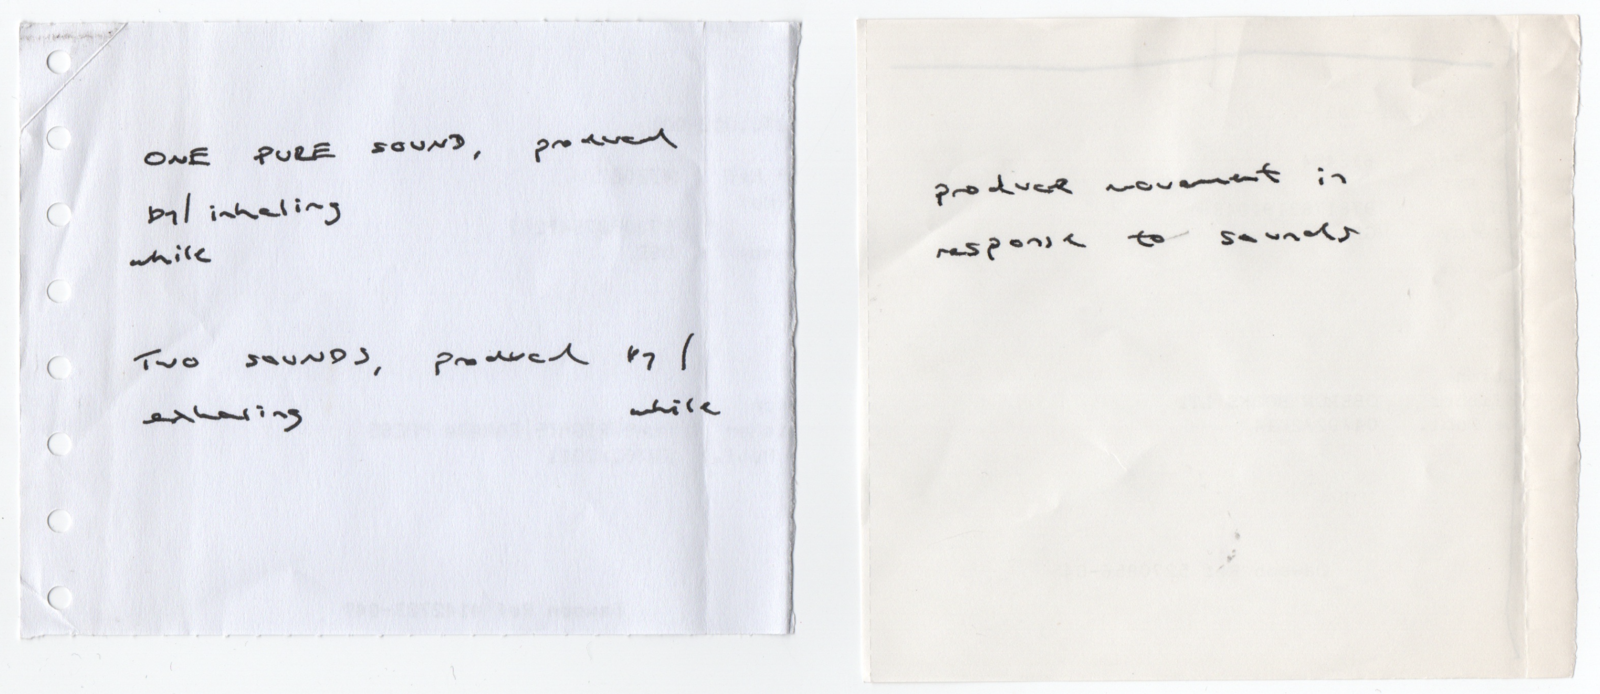 ONE PURE SOUND, produced
by/inhaling
while
TWO SOUNDS, produced by/
exhaling while
produce movement in
response to sounds